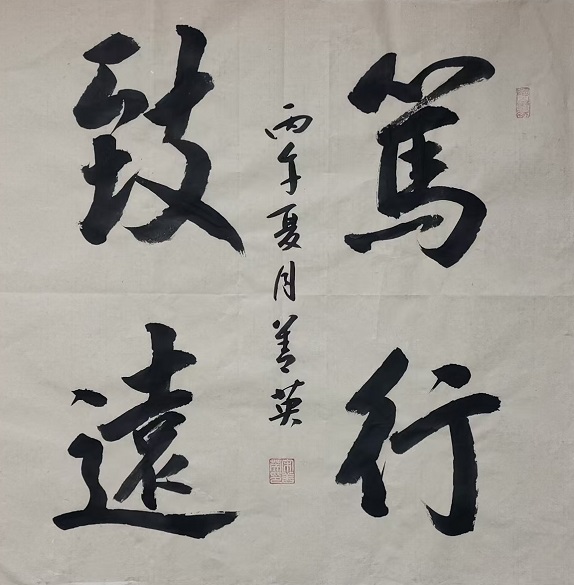 篤行
致遠
丙午夏月善英